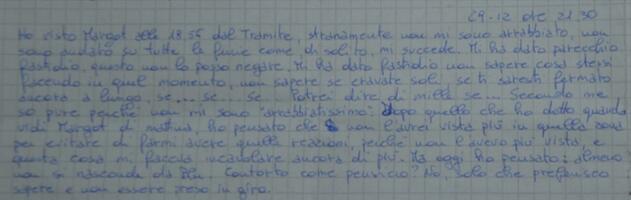 29-12 ore 21.30
Ho visto Margot alle 18.55 dal Tramite, stranamente non mi sono arrabbiato, non
sono andato su tutte le furie come di solito mi succede. Mi ha dato parecchio
fastidio, questo non lo posso negare. Mi ha dato fastidio non sapere cosa stessi
facendo in quel momento, non sapere se eravate soli, se ti saresti fermato
ancora a lungo, se... se... se... Potrei dire di mille se... Secondo me
so pure perché non mi sono "arrabbiatissimo": Dopo quello che ho detto quando
vidi Margot di mattina, ho pensato che non l'avrei vista più in quella zona
per evitare di farmi avere quelle reazioni, perché non l'avevo più vista, e
questa cosa mi faceva incavolare ancora di più. Ma oggi ho pensato: almeno
non si nasconde da Contorto come pensiero? No, solo che preferisco
sapere e non essere preso in giro.